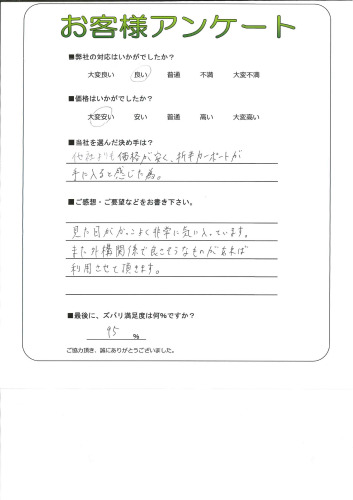 お客様アンケート
■弊社の対応はいかがでしたか?
大変良い 良い 普通 不満 大変不満
■価格はいかがでしたか?
大変安い 安い 普通 高い 大変高い
■当社を選んだ決め手は?
他社よりも価格が安く、折半カーポートが
手に入ると感じた為。
■ご感想・ご要望などをお書き下さい。
見た目がかっこよく非常に気に入っています。
また外構関係で良さそうなものが有れば
利用させて頂きます。
■最後に、ズバリ満足度は何%ですか?
95 %
ご協力頂き、誠にありがとうございました。